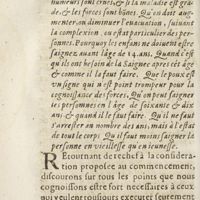 humeurs sont crues, & si la maladie est grã-
de, & les forces sont bônes. Qu'on doit aug-
menter, ou diminuer l'evacuation, suivant
la complexion, ou estat particulier des per-
sonnes. Pourquoy les enfans ne doivent estre
saignez avant l'âge de 14. ans. Quand c'est
qu'ils ont besoin de la saignee apres cét âge
& comme il la faut faire. Que le poux est
un signe qui n'est point trompeur pour la
cognoissance des forces. Qu'on peut saigner
les personnes en l'âge de soixante & dix
ans, & quand il le faut faire. Qu'il ne faut
s'arrester au nombre des ans, mais à l'estat
de tout le corps. Qu'il faut moins saigner la
personne en vieillesse qu'en jeunesse.
REtournant derechef à la considera-
tion proposee au commencement,
discourons sur tous les points que nous
cognoissons estre fort necessaires à ceux
qui veulent tousjours executer seurement